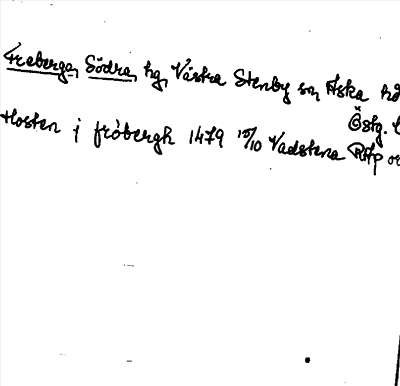 Freberga, Södra, hg, Västra Stenby sn, Aska hd
Östg. l
Hosten i fröbergh 1479 15/10 Vadstena RAp or